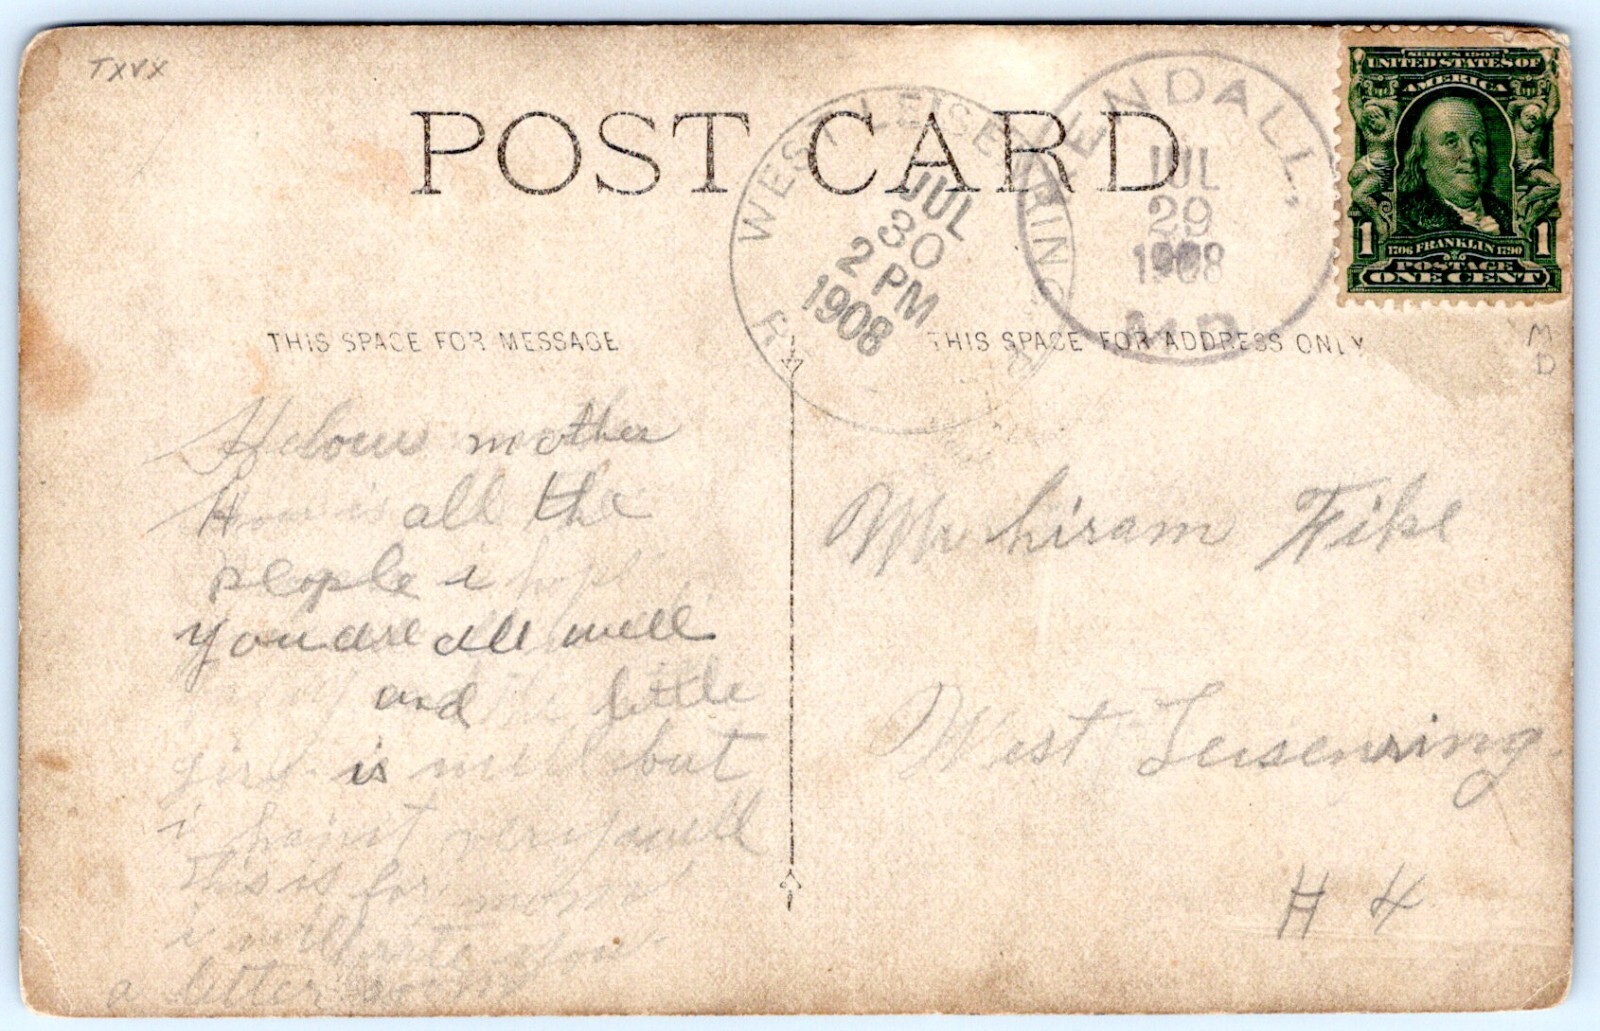 TXVX
POST CARD
WEST LEISENRING
JUL
30
2 PM
1908
KENDALL,
JUL
29
1908
MD.
SERIES 1902
UNITED STATES OF
AMERICA
1 1706 FRANKLIN 1790 1
POSTAGE
ONE CENT
M
D
THIS SPACE FOR MESSAGE
THIS SPACE FOR ADDRESS ONLY
mother
How is all the
people i hope
you are all well
and the little
girl is well but
i haint very well
This is for mom
i will write you
a letter soon
Mr hiram Fike
West Leisenring
H 4